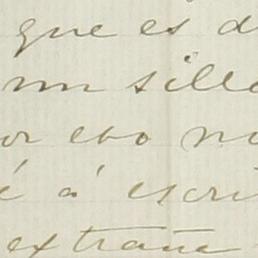 que es d
un sillo
or eso no
é á escri
extrañe